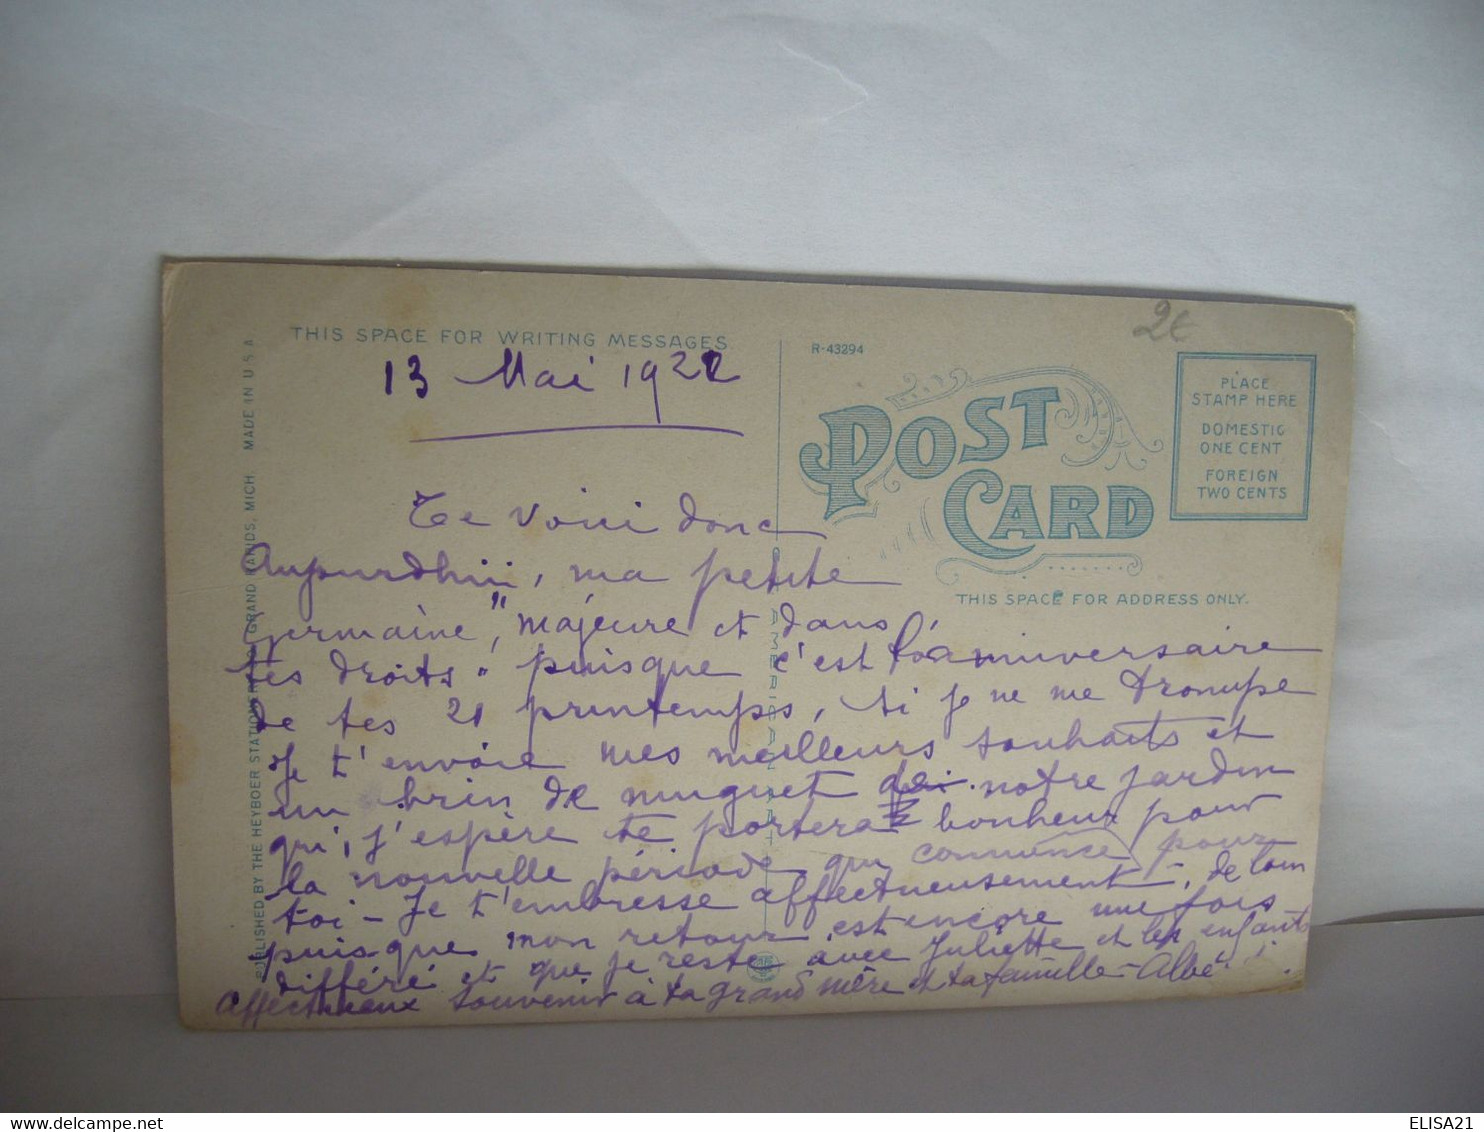 THIS SPACE FOR WRITING MESSAGES
13 Mai 1922
Te voici donc
Aujourdhui, ma petite
Germaine, "majeure et dans
tes droits" puisque c'est l'anniversaire
de tes 21 printemps, si je ne me trompe
Je t'envoie mes meilleurs souhaits et
un brin de muguet de notre jardin
qui, j'espère te portera bonheur pour
la nouvelle période qui commence pour
toi - Je t'embrasse affectueusement, de loin
puisque mon retour est encore une fois
différé et que je reste avec Juliette et les enfants
affectueux souvenir à ta grand mère et ta famille -
PUBLISHED BY THE HEYBOER STATIONERY CO. GRAND RAPIDS, MICH MADE IN U S A
R-43294
2€
POST
CARD
PLACE
STAMP HERE
DOMESTIC
ONE CENT
FOREIGN
TWO CENTS
THIS SPACE FOR ADDRESS ONLY.
delcampe.net
ELISA21